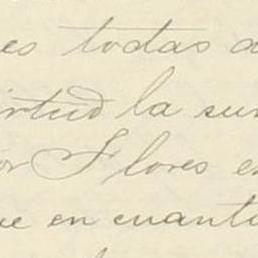 es todas a
irtud la sum
or Flores en
ue en cuanto